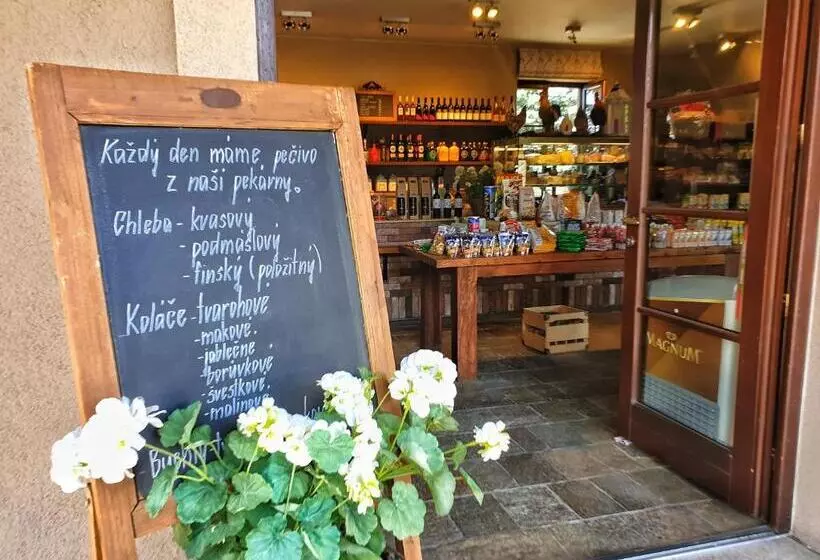 Každý den máme pečivo
z naší pekárny.
Chleba - kvasový
- podmáslový
- finský (položitný)
Koláče - tvarohové
- makové
- jablečné
borůvkové
- švestkové
- malinové
MAGNUM